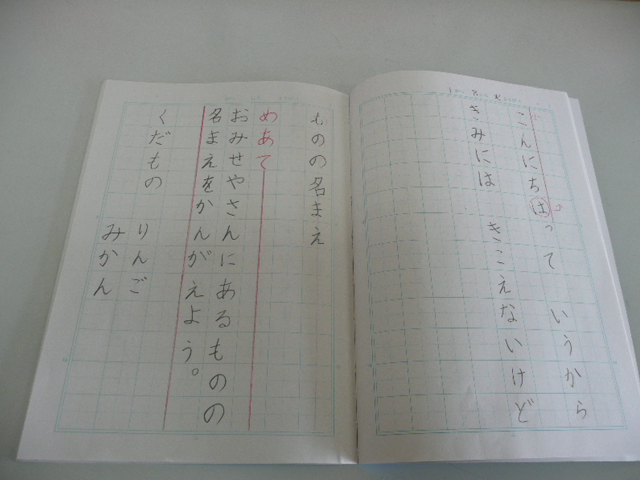 こんにちはって　いうから
きみには　きこえないけど
ものの名まえ
めあて
おみせやさんにあるものの
名まえをかんがえよう。
くだもの　りんご
みかん